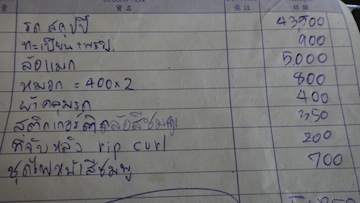 รถ สกุปปี้ 43900
ทะเบียน+พรบ. 900
ล้อแมก 5000
หมวก = 400x2 800
ผ้าคลุมรถ 400
สติกเกอร์ติดล้อสีชมพู 350
ที่จับหลัง rip curl 200
ชุดไฟหน้าสีชมพู 700